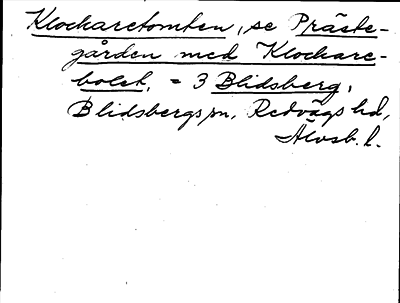 Klockaretomten, se Präste-
gården med Klockare-
bolet, = 3 Blidsberg,
Blidsbergs sn, Redvägs hd,
Älvsb. l.